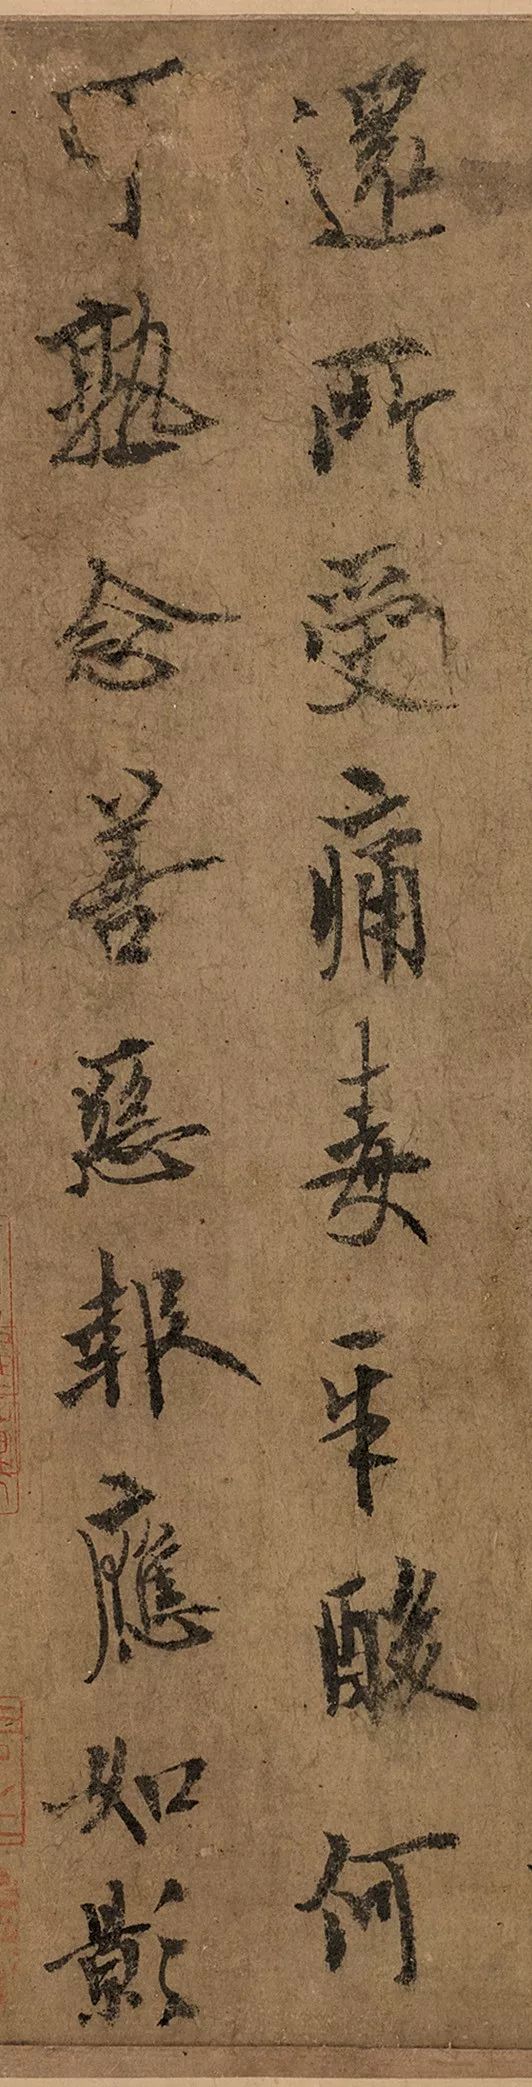 還所受痛毒辛酸何
可孰念善惡報應如影